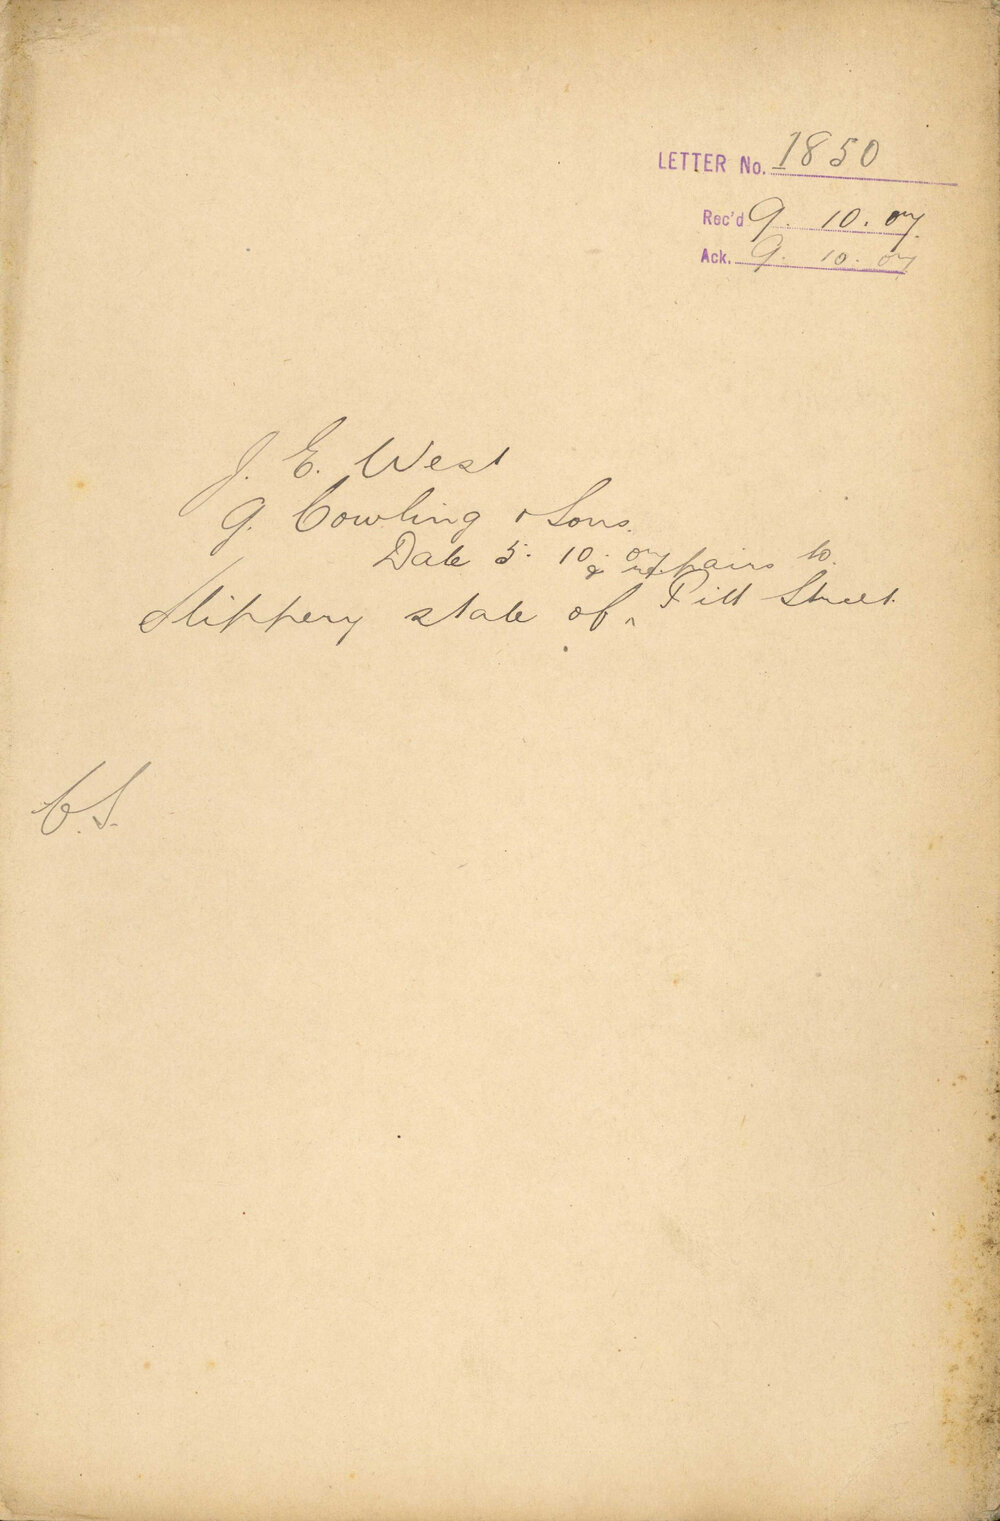 LETTER No. 1850
Rec'd 9. 10. 07.
Ack. 9. 10. 07
J. E. West
G. Cowling & Sons.
Date 5. 10. 07
& repairs to
Slippery state of ‸ Pitt Street.
C.S.